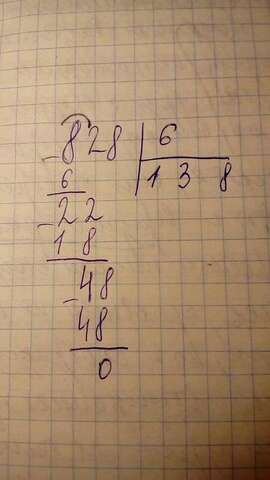 828 6
6 138
-22
18
-48
48
0